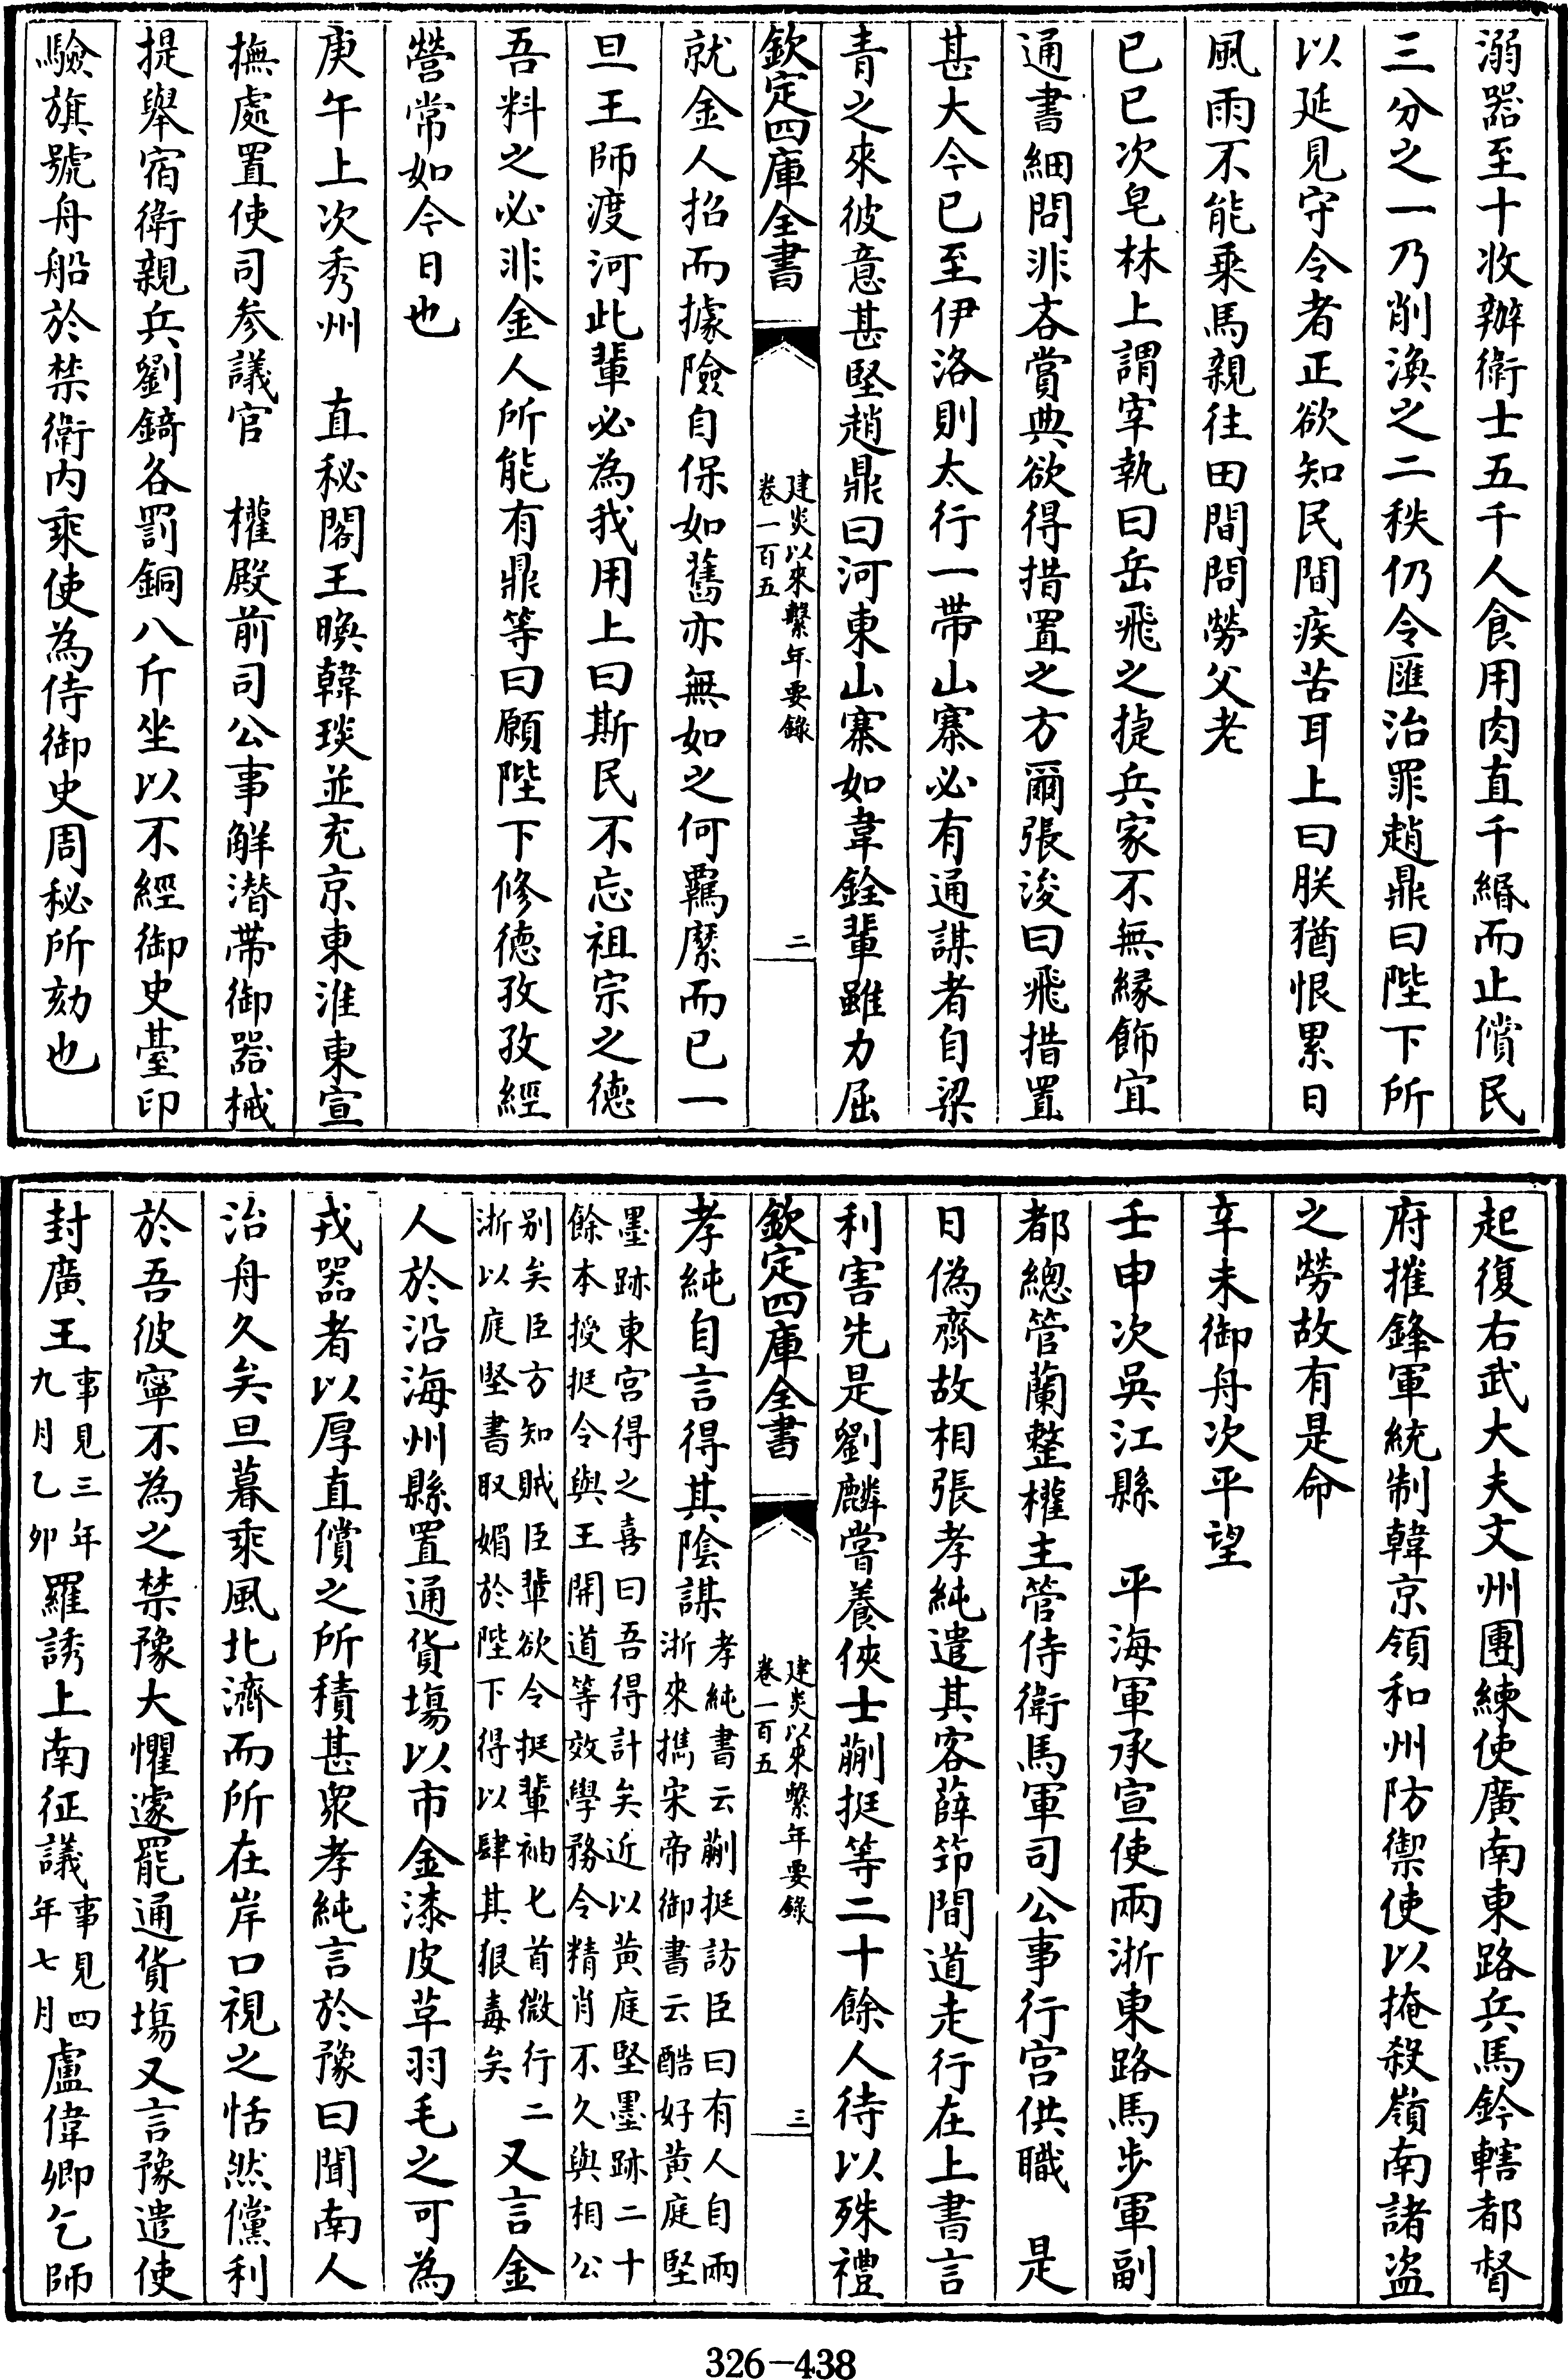 溺器至十收辦衛士五千人食用肉直千緡而止償民
三分之一乃削渙之二秩仍令匯治罪趙鼎曰陛下所
以延見守令者正欲知民間疾苦耳上曰朕猶恨累日
風雨不能乘馬親往田間問勞父老
已巳次皂林上謂宰執曰岳飛之捷兵家不無緣飾宜
通書細問非吝賞典欲得措置之方爾張浚曰飛措置
甚大今已至伊洛則太行一帶山寨必有通謀者自梁
青之來彼意甚堅趙鼎曰河東山寨如韋銓輩雖力屈
欽定四庫全書
建炎以來繫年要錄
卷一百五
二
就金人招而據險自保如舊亦無如之何羈縻而已一
旦王師渡河此輩必為我用上曰斯民不忘祖宗之德
吾料之必非金人所能有鼎等曰願陛下修德孜孜經
營常如今日也
庚午上次秀州　直秘閣王㬇韓琰並充京東淮東宣
撫處置使司參議官　權殿前司公事解潛帶御器械
提舉宿衛親兵劉錡各罰銅八斤坐以不經御史臺印
驗旗號舟船於禁衛內乘使為侍御史周秘所劾也
起復右武大夫文州團練使廣南東路兵馬鈐轄都督
府摧鋒軍統制韓京領和州防禦使以掩殺嶺南諸盜
之勞故有是命
辛未御舟次平望
壬申次吳江縣　平海軍承宣使兩浙東路馬步軍副
都總管蘭整權主管侍衛馬軍司公事行宮供職　是
日偽齊故相張孝純遣其客薛筇間道走行在上書言
利害先是劉麟嘗養俠士蒯挺等二十餘人待以殊禮
欽定四庫全書
建炎以來繫年要錄
卷一百五
三
孝純自言得其陰謀孝純書云蒯挺訪臣曰有人自兩
浙來攜宋帝御書云酷好黃庭堅
墨跡東宮得之喜曰吾得計矣近以黃庭堅墨跡二十
餘本授挺令與王開道等效學務令精肖不久與相公
別矣臣方知賊臣輩欲令挺輩袖七首微行二
浙以庭堅書取媚於陛下得以肆其狠毒矣又言金
人於沿海州縣置通貨場以市金漆皮草羽毛之可為
戎器者以厚直償之所積甚衆孝純言於豫曰聞南人
治舟久矣旦暮乘風北濟而所在岸口視之恬然儻利
於吾彼寧不為之禁豫大懼遂罷通貨場又言豫遣使
封廣王事見三年
九月乙卯羅誘上南征議事見四
年七月盧偉卿乞師
326-438